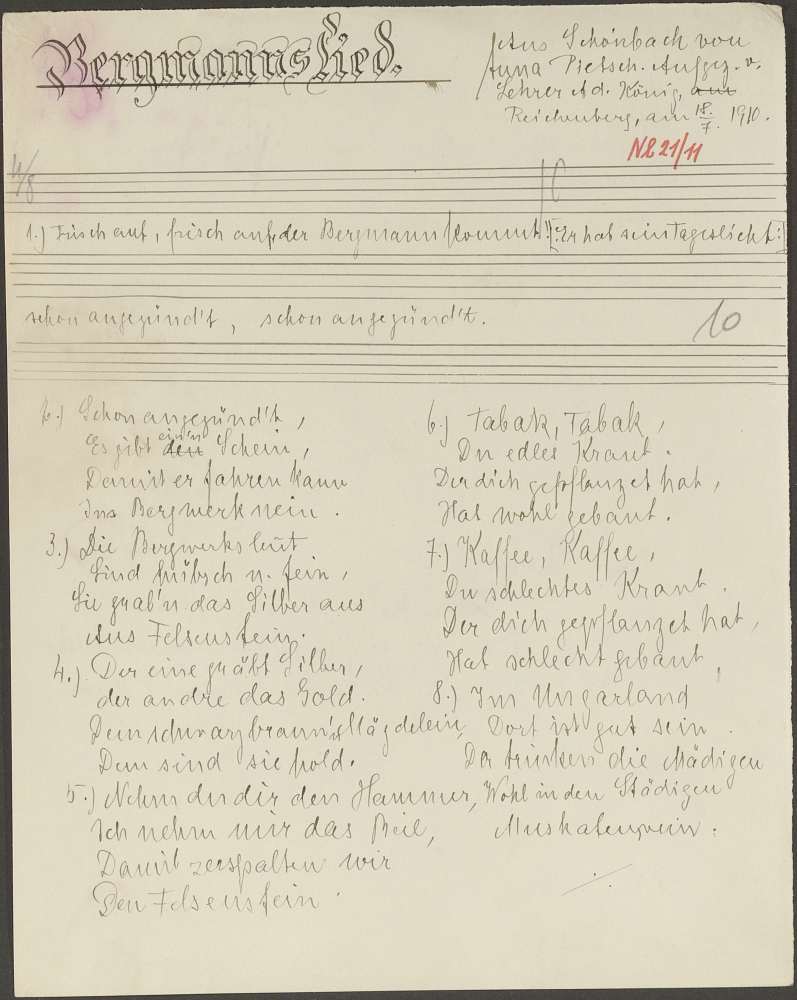 Bergmannslied.
Aus Schönbach von
Anna Pietsch. Aufgez. v.
Lehrer Ad. König, am
Reichenberg, am 18./7. 1910.
N2 21/11
4/8
1.) Frisch auf, frisch auf, der Bergmann kommt! [: Er hat sein Tageslicht :]
schon angezünd't, schon angezünd't.
10
2.) Schon angezünd't,
Es gibt den ein'n Schein,
Damit er fahren kann
Ins Bergwerk nein.
3.) Die Bergwerksleut
Sind hübsch u. fein,
Sie grab'n das Silber aus
Aus Felsenstein.
4.) Der eine gräbt Silber,
der andre das Gold.
Dem schwarzbraun'n Mägdelein,
Dem sind sie hold.
5.) Nehm du dir den Hammer,
Ich nehm mir das Beil,
Damit zerspalten wir
Den Felsenstein.
6.) Tabak, Tabak,
Du edles Kraut.
Der dich gepflanzet hat,
Hat wohl gebaut.
7.) Kaffee, Kaffee,
Du schlechtes Kraut.
Der dich gepflanzet hat,
Hat schlecht gebaut,
8.) Im Ungarland
Dort ist gut sein.
Da trinken die Mädigen
Wohl in den Städigen
Muskatenwein.